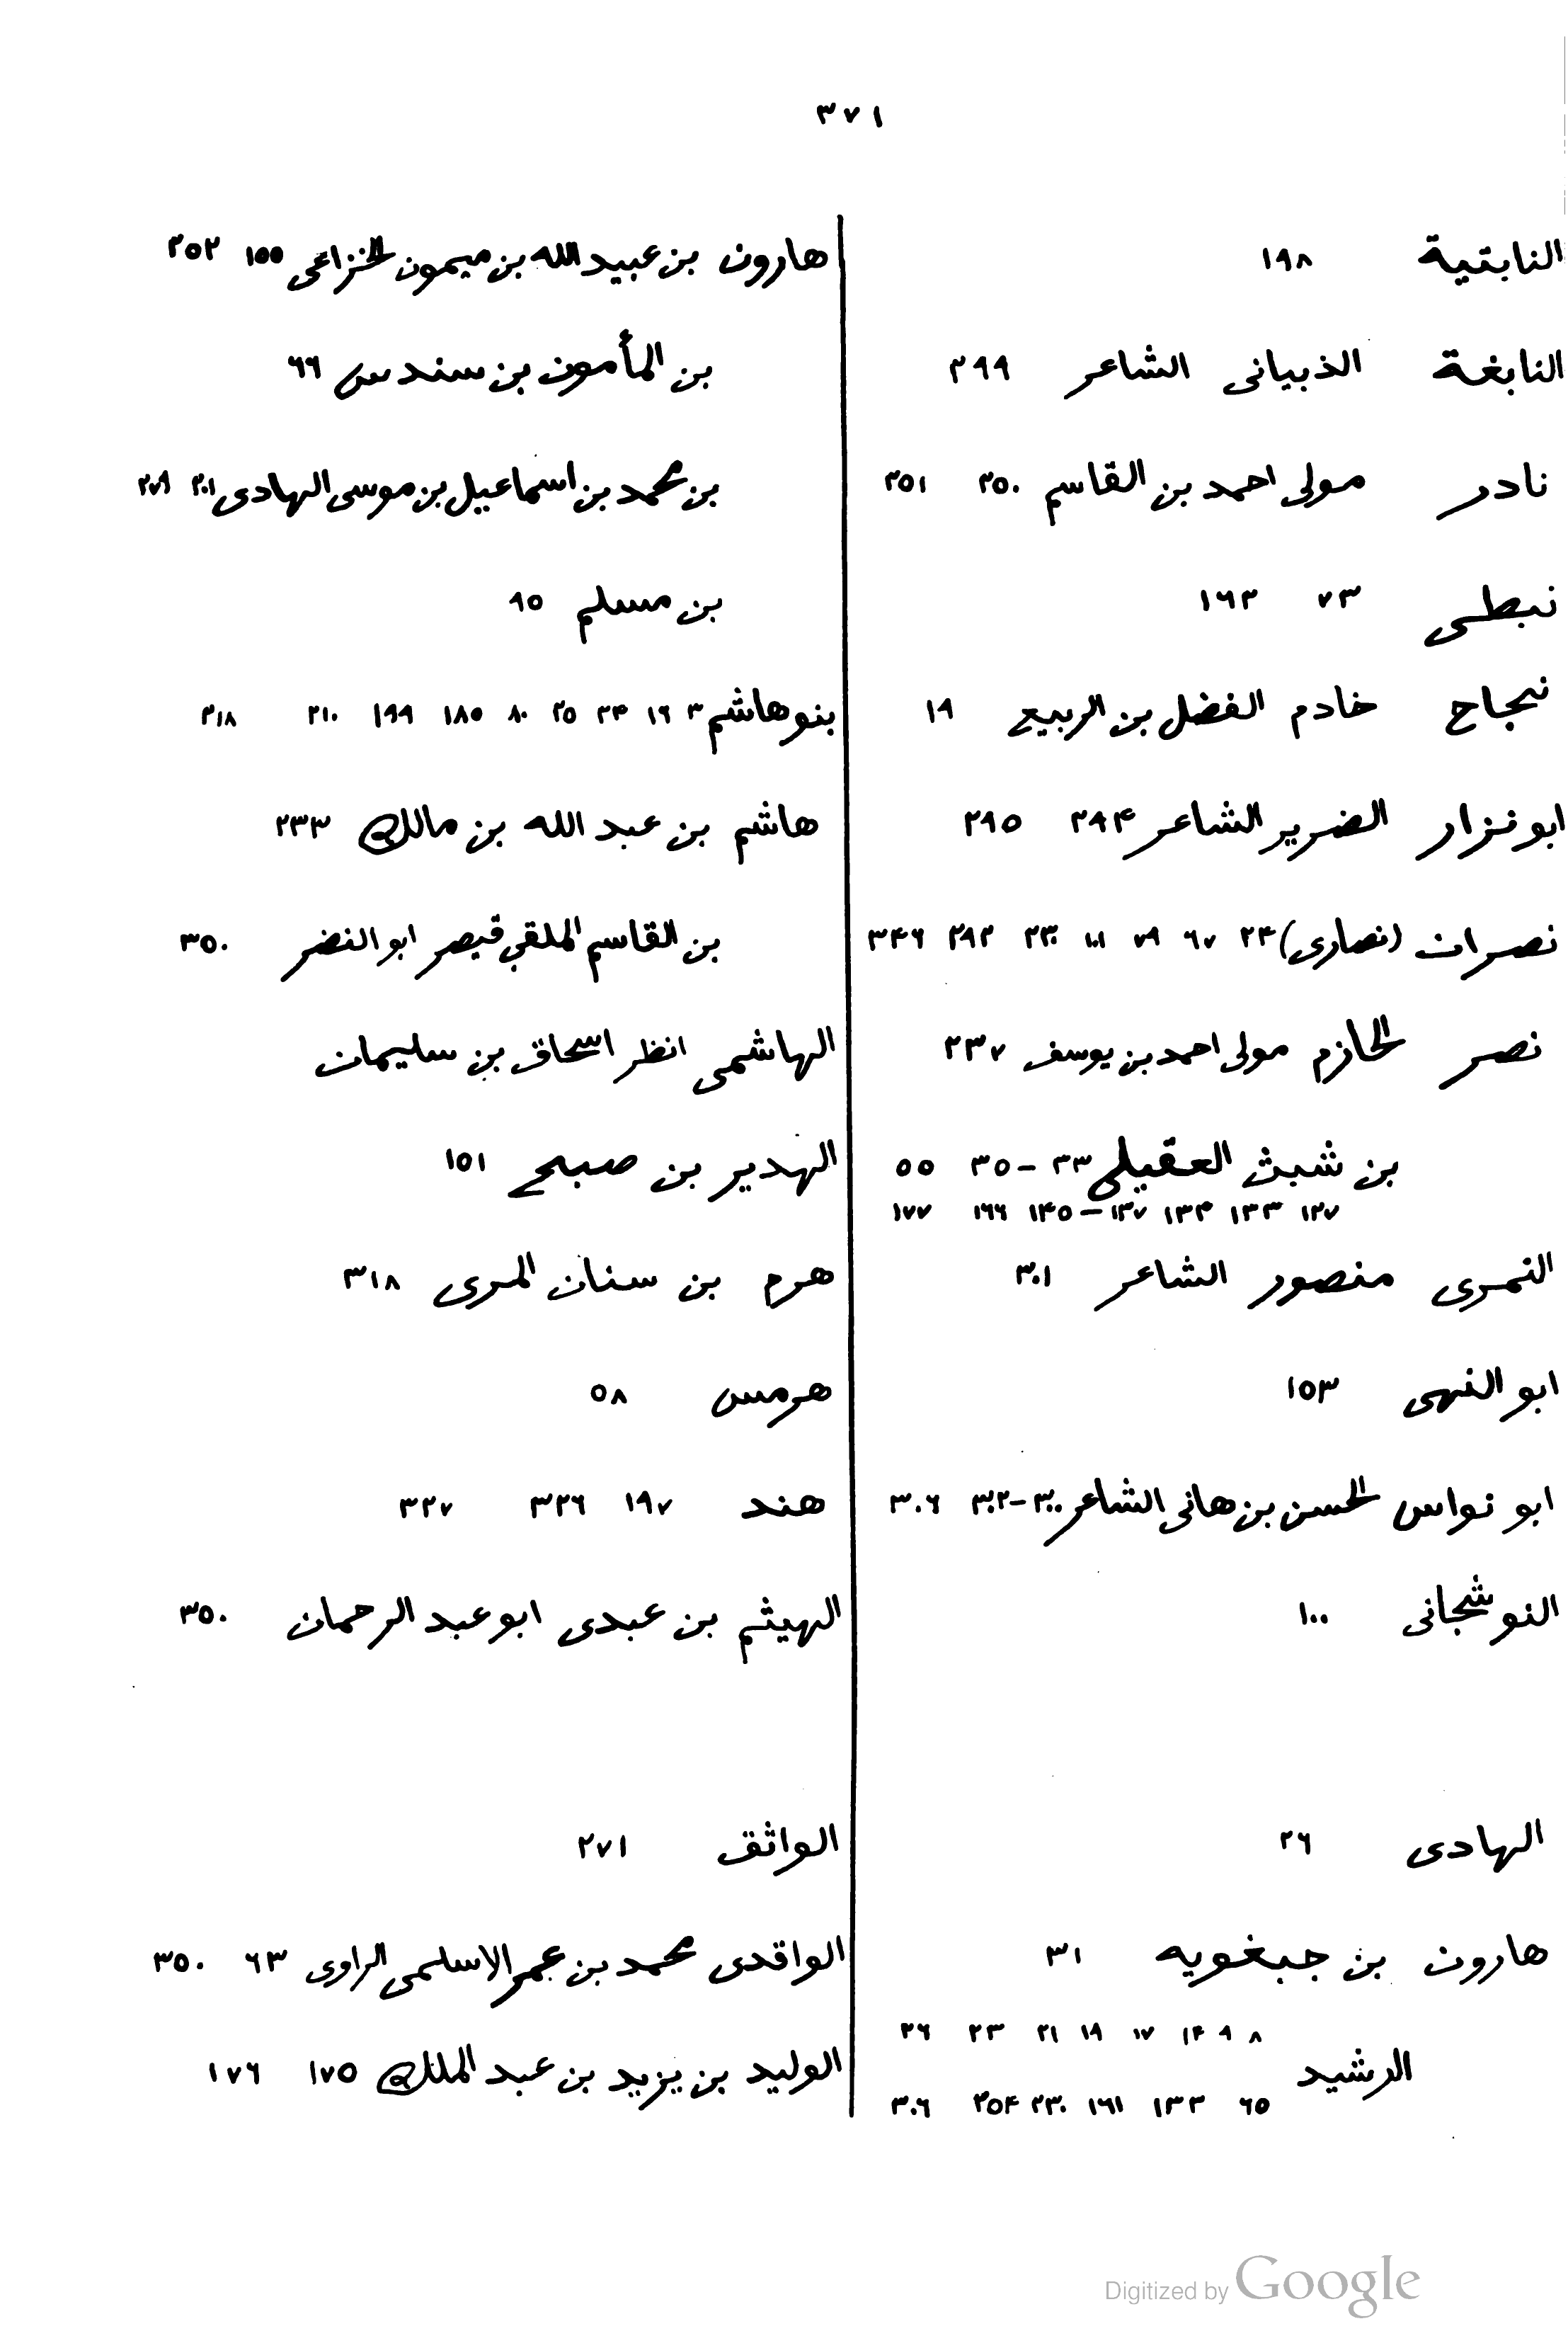 ٣٧١
النابتية ١٩٨
النابغة الذبيانى الشاعر ٢٩٩
نادر مولى احمد بن القاسم ٢٥٠ ٢٥١
نبطى ٧٣ ١٦٣
نجاح خادم الفضل بن الربيع ١٩
ابو نزار الضرير الشاعر ٢٩۴ ٢٩٥
نصران (نصارى) ٢۴ ٦٧ ٧٩ ١٠١ ٢٣٠ ٢٩٢ ٣۴٦
نصر الخازم مولى احمد بن يوسف ٢٣٧
بن شبث العقيلى ٣٣ - ٣٥ ٥٥
١٢٧ ١٣٣ ١٣۴ ١٣٧ - ١۴٥ ١٦٦ ١٧٧
النمرى منصور الشاعر ٣٠١
ابو النهى ١٥٣
ابو نواس الحسن بن هانى الشاعر ٣٠٠ - ٣٠٢ ٣٠٦
النوشجانى ١٠٠
الهادى ٢٦
هارون بن جبغويه ٣١
٨ ٩ ١۴ ١٧ ١٩ ٢١ ٢٣ ٢٦
الرشيد
٦٥ ١٣٣ ١٦١ ٢٣٠ ٢٥۴ ٣٠٦
هارون بن عبيد الله بن ميمون الخزاعى ١٥٥ ٢٥٢
بن المأمون بن سندس ٦٦
بن محمد بن اسماعيل بن موسى الهادى ٢٠١ ٢٧٩
بن مسلم ٩٥
بنو هاشم ٣ ١٦ ٢۴ ٢٥ ٨٠ ١٨٥ ١٩٩ ٢١٠ ٢١٨
هاشم بن عبد الله بن مالك ٢٣٣
بن القاسم الملقى قيصر ابو النضر ٣٥٠
الهاشمى انظر اسحاق بن سليمان
الهدير بن صبح ١٥١
هرم بن سنان المرى ٣١٨
هرمس ٥٨
هند ١٩٧ ٣٢٦ ٣٢٧
الهيثم بن عبدى ابو عبد الرحمان ٣٥٠
الواثق ٢٧١
الواقدى محمد بن عمر الاسلمى الراوى ٦٣ ٣٥٠
الوليد بن يزيد بن عبد الملك ١٧٥ ١٧٦
Digitized by Google